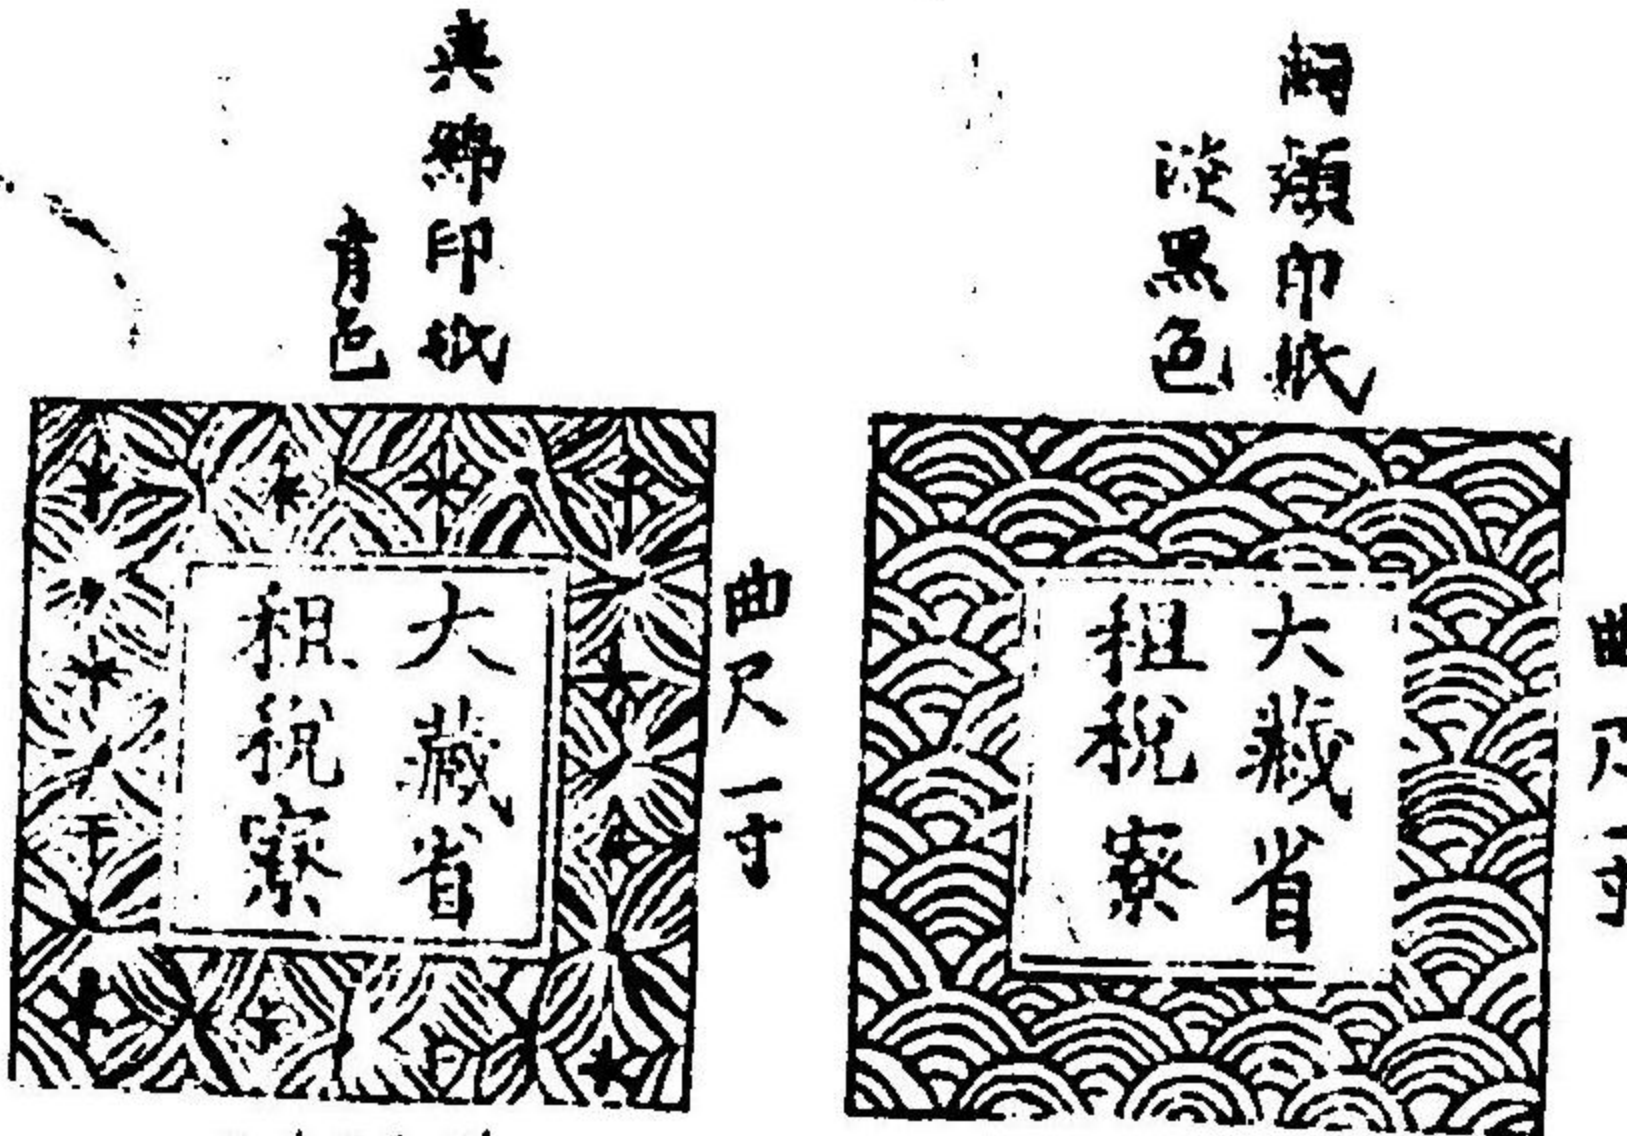 絹類印紙
淡黒色
大藏省
租税寮
曲尺一寸
真綿印紙
青色
大藏省
租税寮
曲尺一寸